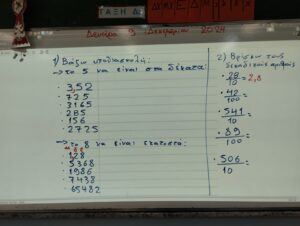 ΤΑΞΗ Δ
Δευτέρα 9 Δεκεμβρίου 2024
1) Βάζω υποδιαστολή:
→ το 5 να είναι στα δέκατα:
· 3,52
· 725
· 3165
· 285
· 156
· 2725
→ το 8 να είναι εκατοστά:
· 128
· 5368
· 1986
· 7438
· 65482
2) Βρίσκω τους δεκαδικούς αριθμούς
· 28/10 = 2,8
· 42/100 =
· 541/10 =
· 89/100 =
· 506/10 =